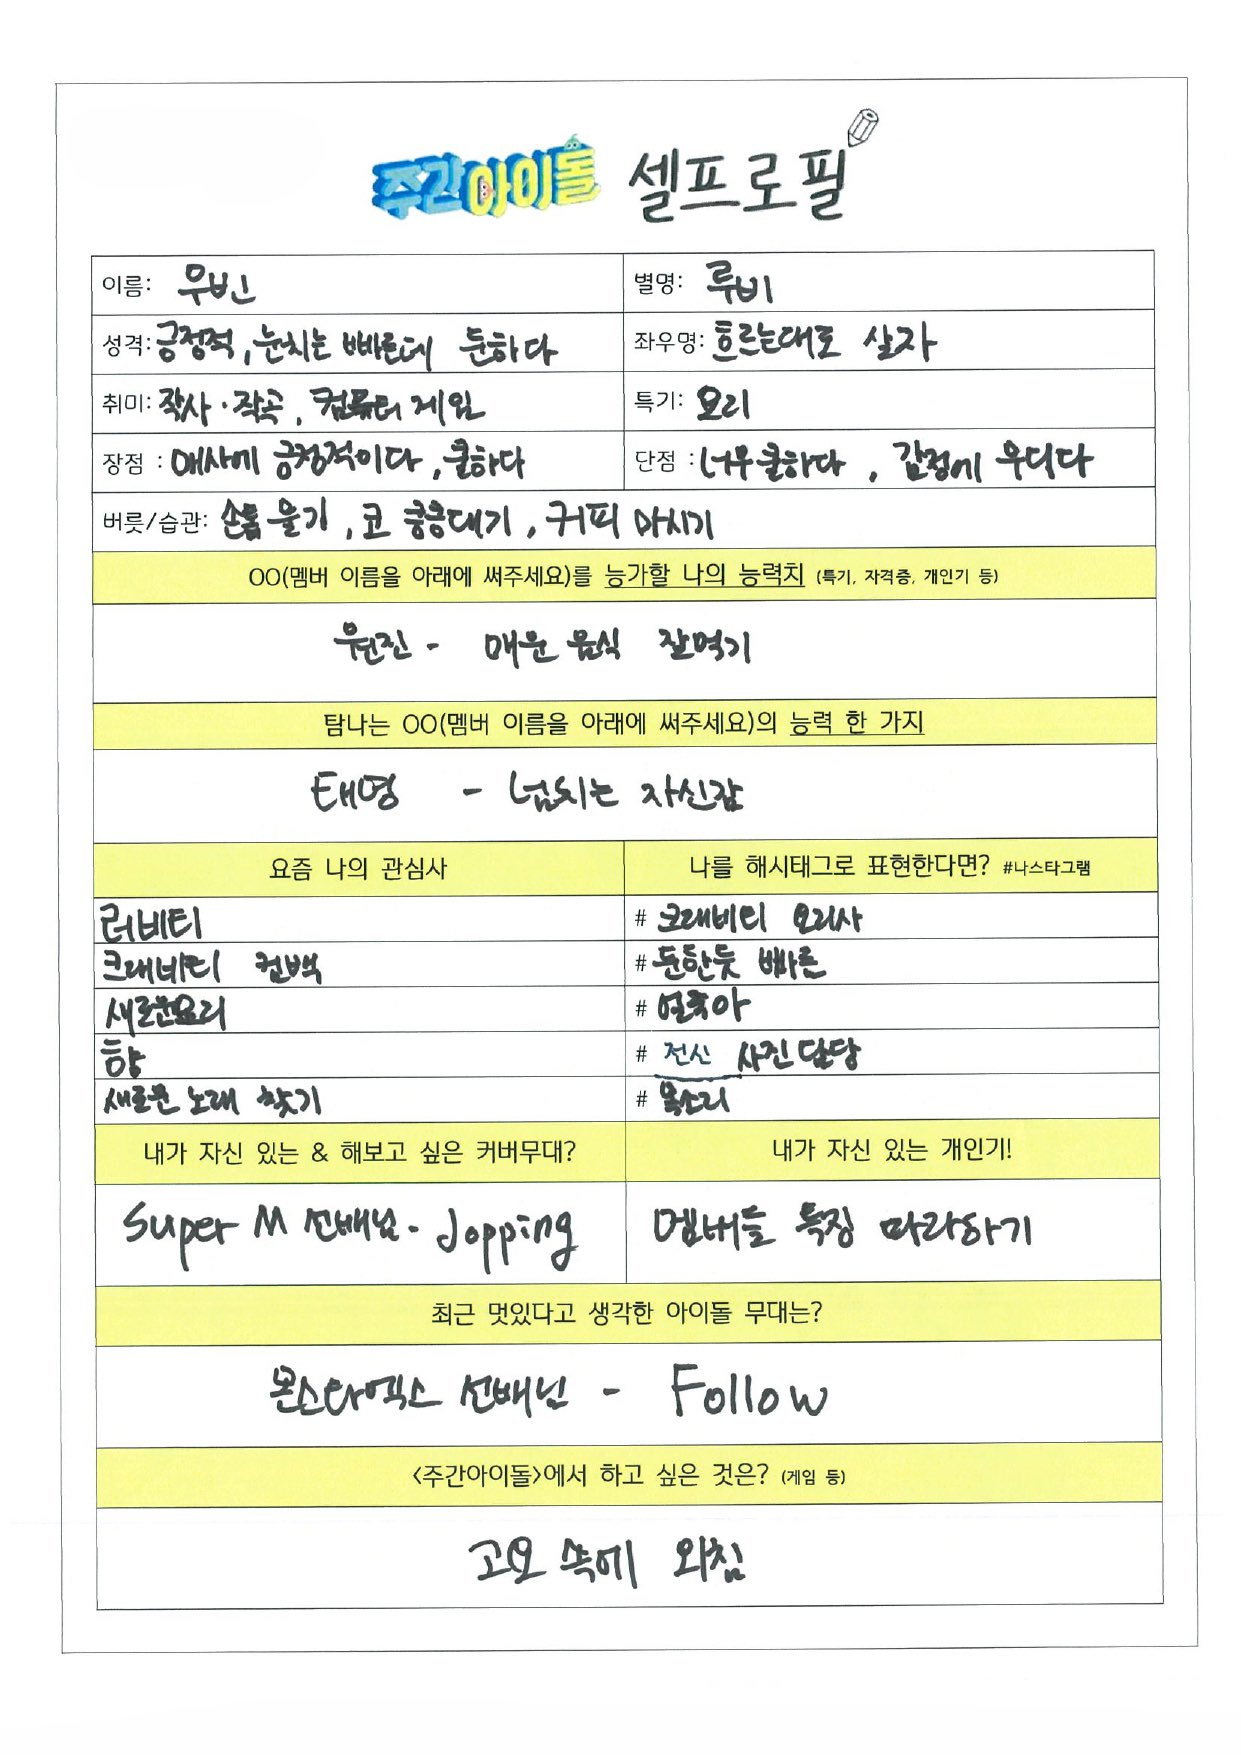 주간아이돌 셀프로필
이름: 우빈 별명: 루비
성격: 긍정적, 눈치는 빠른데 둔하다 좌우명: 흐르는대로 살자
취미: 작사·작곡, 컴퓨터 게임 특기: 요리
장점 : 매사에 긍정적이다, 쿨하다 단점 : 너무 쿨하다, 감정에 무디다
버릇/습관: 손톱 물기, 코 킁킁대기, 커피 마시기
OO(멤버 이름을 아래에 써주세요)를 능가할 나의 능력치 (특기, 자격증, 개인기 등)
원진 - 매운 음식 잘먹기
탐나는 OO(멤버 이름을 아래에 써주세요)의 능력 한 가지
태영 - 넘치는 자신감
요즘 나의 관심사 나를 해시태그로 표현한다면? #나스타그램
러비티 # 크래비티 요리사
크래비티 컴백 # 둔한듯 빠른
새로운요리 # 얼죽아
향 # 전신 사진 담당
새로운 노래 찾기 # 목소리
내가 자신 있는 & 해보고 싶은 커버무대? 내가 자신 있는 개인기!
Super M 선배님 - Jopping 멤버들 특징 따라하기
최근 멋있다고 생각한 아이돌 무대는?
몬스타엑스 선배님 - Follow
<주간아이돌>에서 하고 싶은 것은? (게임 등)
고요 속에 외침